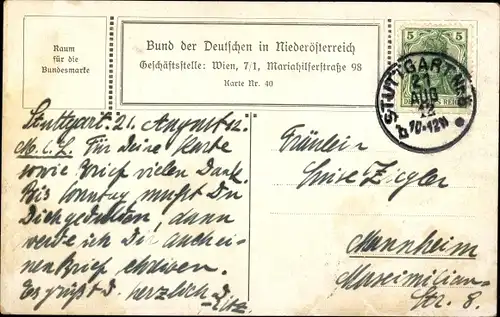 Raum
für die
Bundesmarke
Bund der Deutschen in Niederösterreich
Geschäftsstelle: Wien, 7/1, Mariahilferstraße 98
Karte Nr. 40
5 5
STUTTGART No. 8
21
AUG
12
10-12N
Stuttgart. 21. August 12.
M. l. L. Für Deine Karte
sowie Brief vielen Dank.
Bis Sonntag mußt Du
Dich gedulden, dann
werde ich Dir auch ei-
nen Brief
Es grüßt D. herzlich D.
Fräulein
Luise Ziegler
Mannheim
Maximilian-
Str. 8.